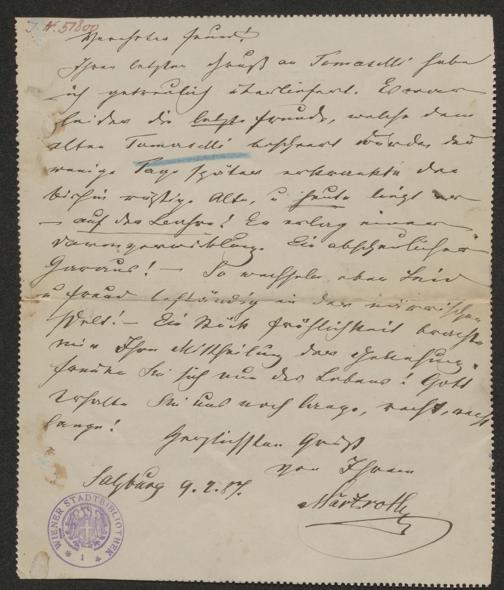 J. N. 57800
Verehrter Freund!
Ihren letzten Gruß an Tomaselli habe
ich getreulich überliefert. Es war
leider die letzte Freude, welche dem
alten Tomaselli beschert wurde, denn
wenige Tage später erkrankte der
bis hin rüstige Alte, u heute liegt er
– auf der Bahre! Es erlag einer
Darmverwicklung. Ein abscheulicher
Garaus! – So wechseln eben Leid
u Freud beständig in der närrischen
Welt! – Ein Stück Fröhlichkeit brachte
mir Ihre Mittheilung der Genesung.
Freuen Sie sich nun des Lebens! Gott
erhalte Sie uns noch lange, recht, recht
lange!
Herzlichsten Gruß
von Ihrem
Salzburg 9. 2. 87.
Märzroth
WIENER STADTBIBLIOTHEK
1